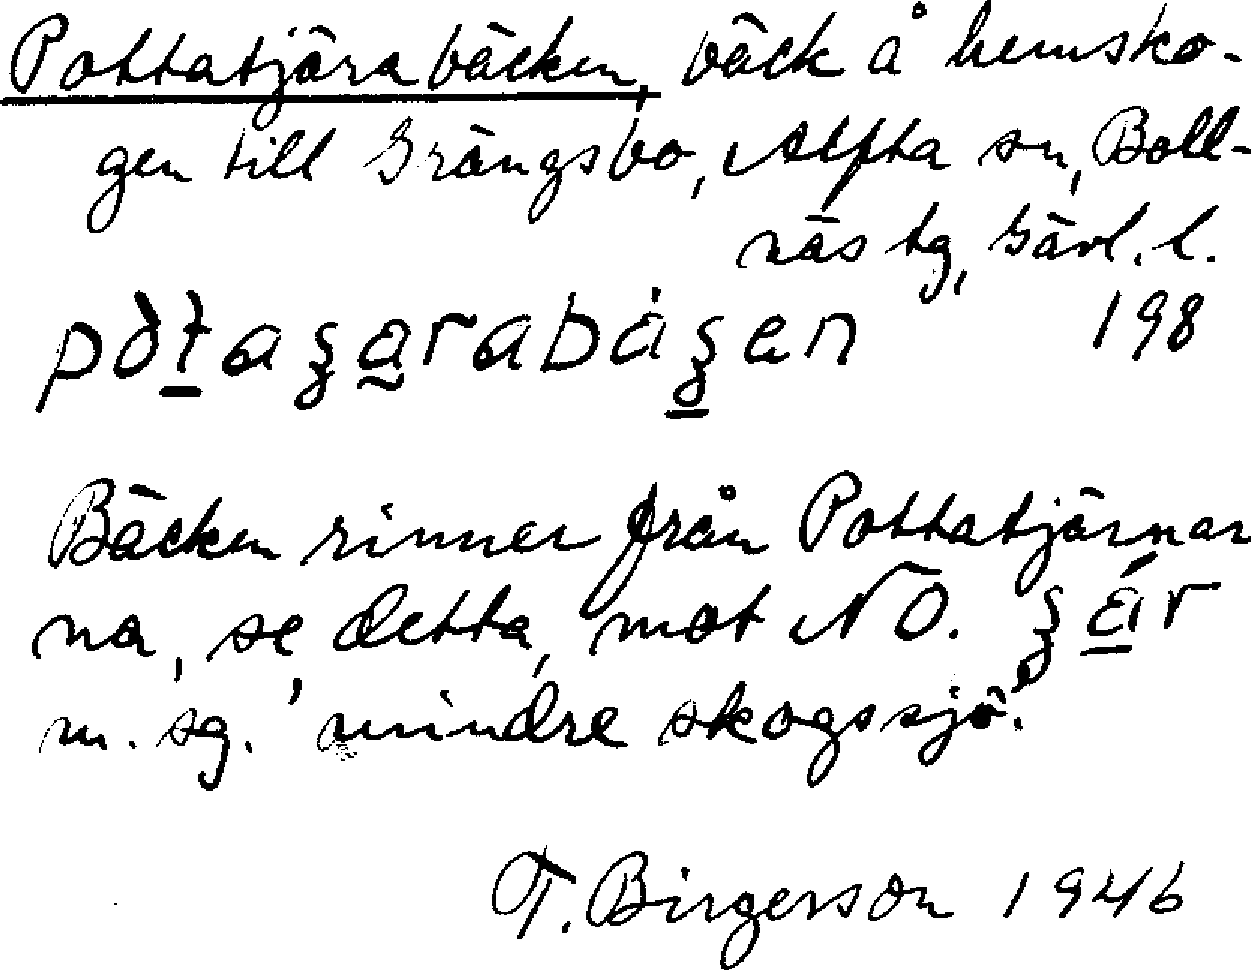 Pottatjärabäcken, bäck å hemsko-
gen till Grängsbo, Alfta sn, Boll-
näs tg, Gävl. l.
198
Bäcken rinner från Pottatjärnar
na, se detta, mot NÖ.
m. sg. 'mindre skogssjö'.
T. Birgerson 1946